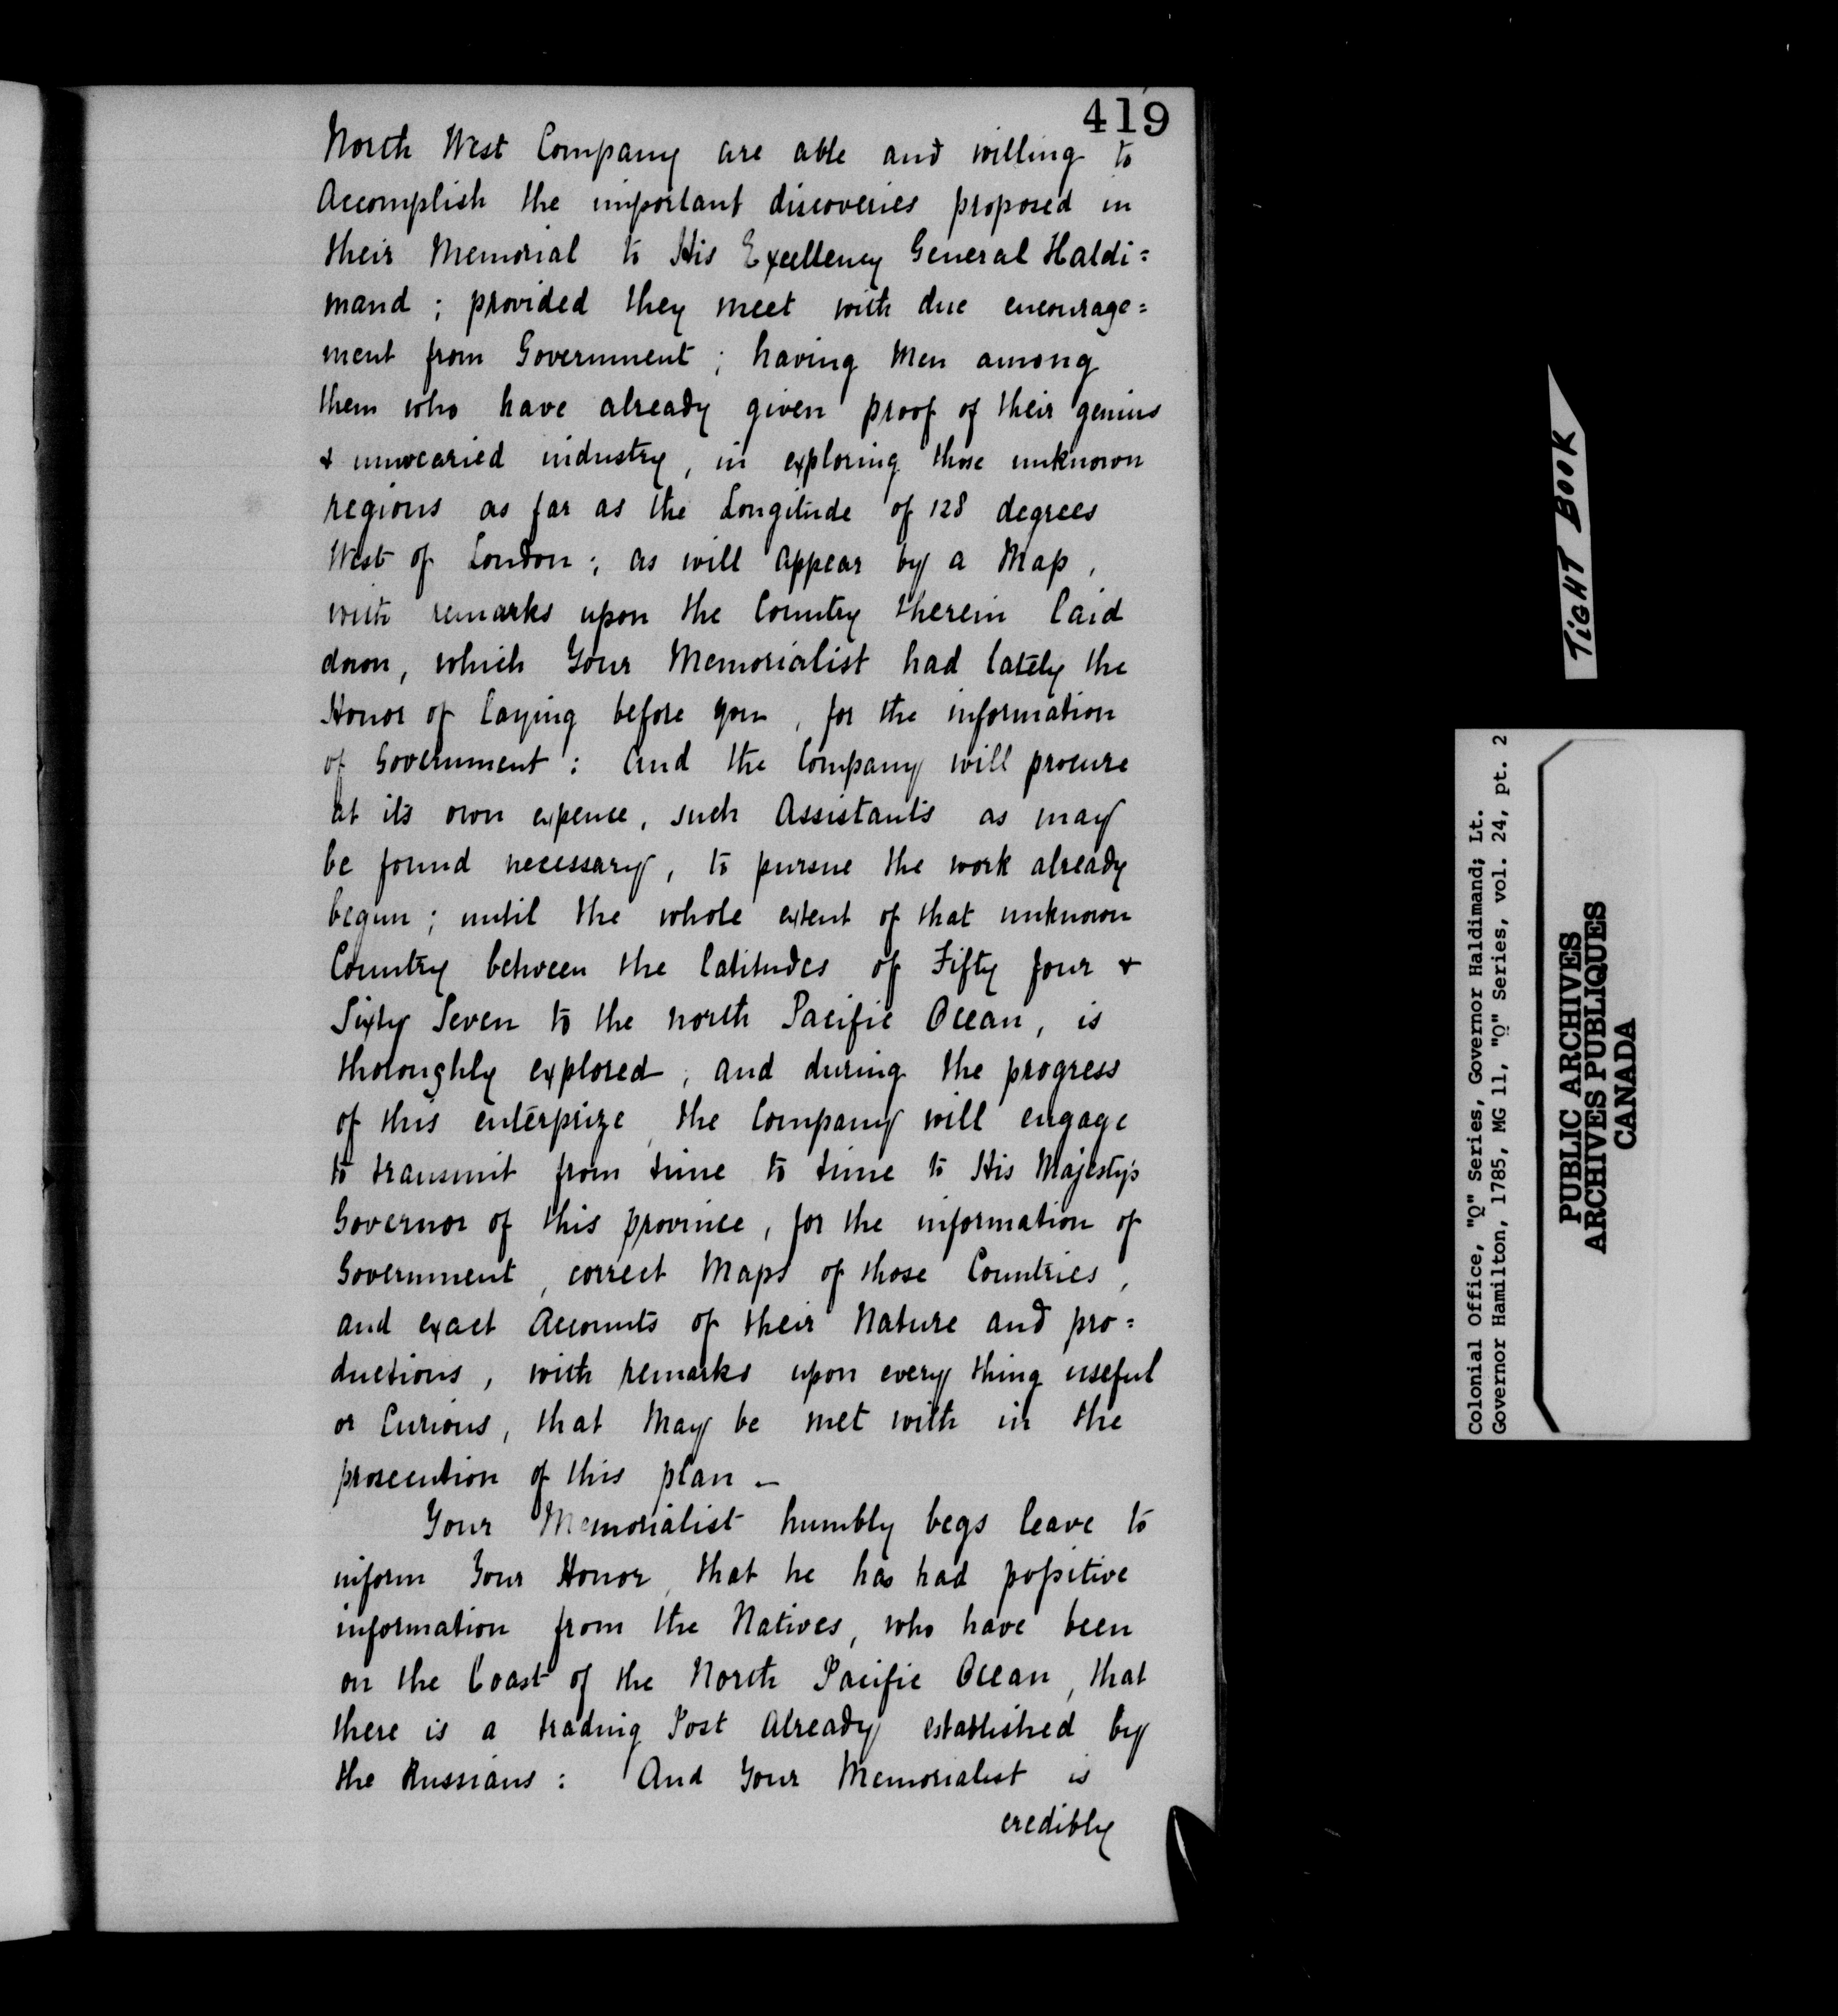 419
North West Company are able and willing to
Accomplish the important discoveries proposed in
their Memorial to His Excellency General Haldi=
mand ; provided they meet with due encourage=
ment from Government ; having Men among
them who have already given proof of their genius
& unwearied industry, in exploring those unknown
regions as far as the Longitude of 128 degrees
West of London ; as will appear by a Map,
with remarks upon the Country therein laid
down, which Your Memorialist had lately the
Honor of laying before you, for the information
of Government : And the Company will procure
at its own expence, such Assistants as may
be found necessary, to pursue the work already
begun ; until the whole extent of that unknown
Country between the latitudes of Fifty four &
Sixty Seven to the North Pacific Ocean, is
thoroughly explored, and during the progress
of this enterprize, the Company will engage
to transmit from time to time to His Majesty's
Governor of this province, for the information of
Government, correct Maps of those Countries,
and exact Accounts of their Nature and pro=
ductions, with remarks upon every thing useful
or Curious, that may be met with in the
prosecution of this plan —
Your Memorialist humbly begs leave to
inform Your Honor, that he has had poſsitive
information from the Natives, who have been
on the Coast of the North Pacific Ocean, that
there is a trading Post already established by
the Russians : And Your Memorialist is
credibly
TIGHT BOOK
Colonial Office, "Q" Series, Governor Haldimand; Lt.
Governor Hamilton, 1785, MG 11, "Q" Series, vol. 24, pt. 2
PUBLIC ARCHIVES
ARCHIVES PUBLIQUES
CANADA